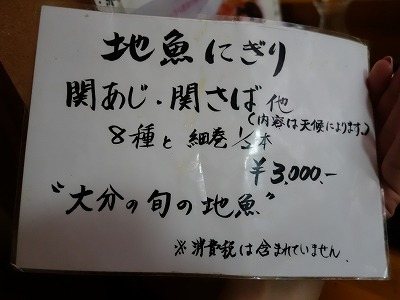 地魚にぎり
関あじ・関さば 他
(内容は天候によります。)
8種と細巻1/2本
¥3,000.-
"大分の旬の地魚"
※消費税は含まれていません。